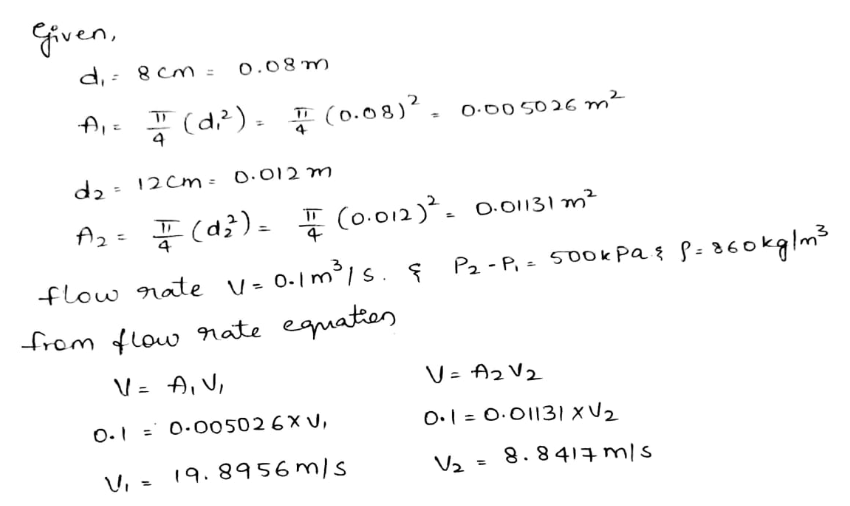 Given,
d₁ = 8 cm = 0.08 m
A₁ = π/4 (d₁²) = π/4 (0.08)² = 0.005026 m²
d₂ = 12 cm = 0.012 m
A₂ = π/4 (d₂²) = π/4 (0.012)² = 0.01131 m²
flow rate V = 0.1 m³/s. & P₂ - P₁ = 500 kPa & ρ = 860 kg/m³
from flow rate equation
V = A₁ V₁ V = A₂ V₂
0.1 = 0.005026 × V₁ 0.1 = 0.01131 × V₂
V₁ = 19.8956 m/s V₂ = 8.8417 m/s